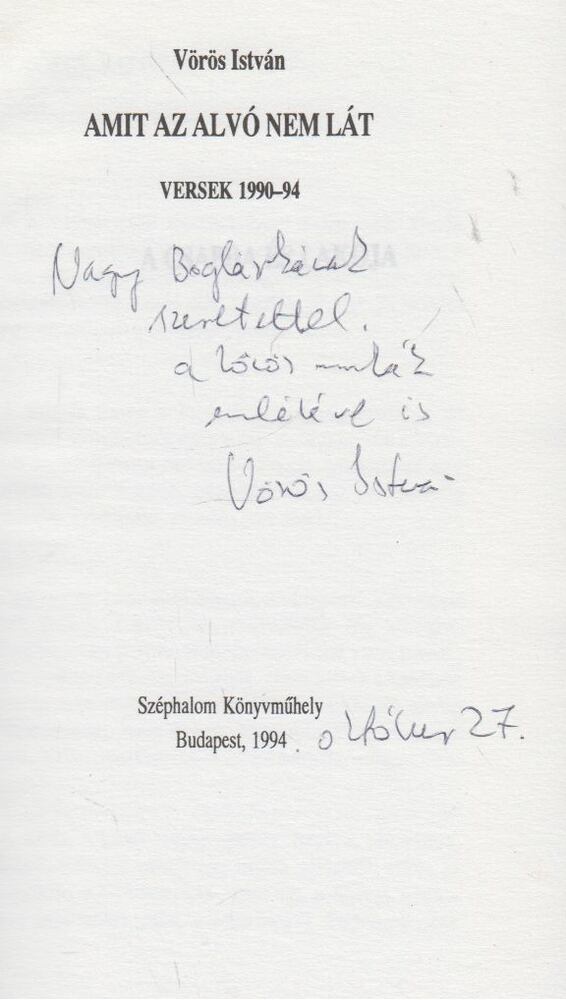 Vörös István
AMIT AZ ALVÓ NEM LÁT
VERSEK 1990–94
Nagy Boglárkának
szeretettel.
a közös munkák
emlékével is
Vörös István
Széphalom Könyvműhely
Budapest, 1994. október 27.